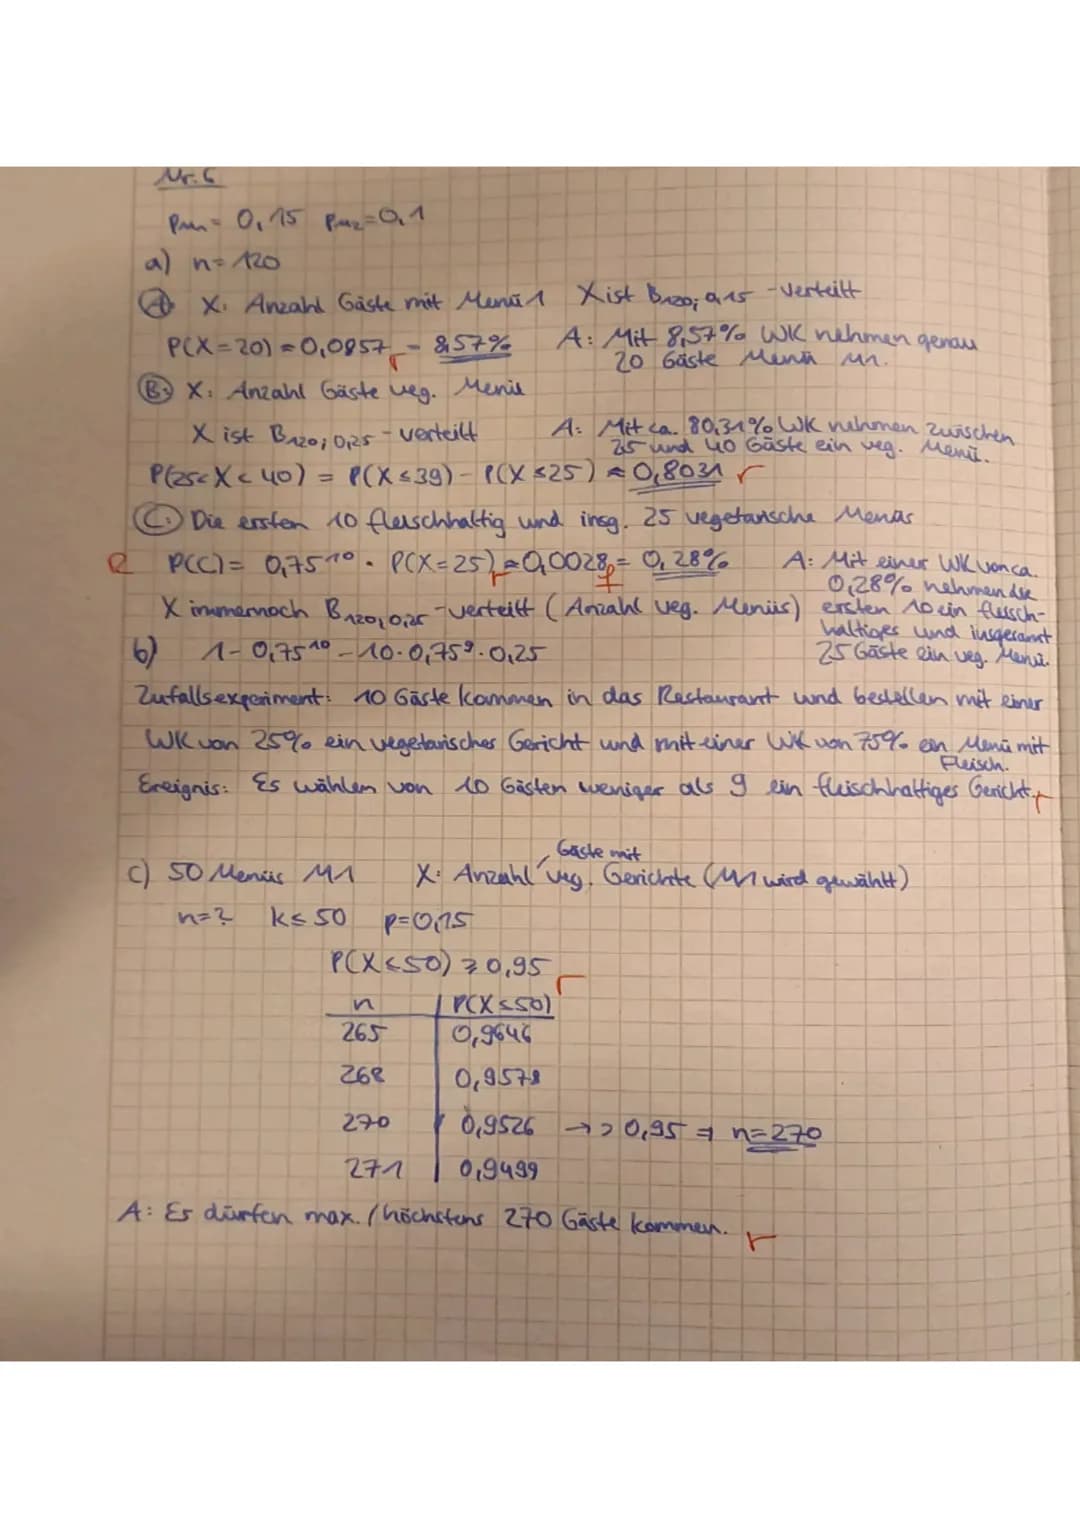 Nr. 6
PM1 = 0,15 PM2 = 0,1
a) n = 120
A X: Anzahl Gäste mit Menü 1 X ist B120; 0,15 -verteilt
P(X=20) ≈ 0,0857 = 8,57% A: Mit 8,57% WK nehmen genau
20 Gäste Menü M1.
B: X: Anzahl Gäste veg. Menü
X ist B120; 0,25 - verteilt A: Mit ca. 80,31% WK nehmen zwischen
25 und 40 Gäste ein veg. Menü.
P(25<X<40) = P(X≤39) - P(X≤25) ≈ 0,8031 r
C: Die ersten 10 fleischhaltig und insg. 25 vegetarische Menüs
P(C) = 0,75^10 · P(X=25) ≈ 0,0028 = 0,28% A: Mit einer WK von ca.
0,28% nehmen die
X immernoch B120; 0,25 -verteilt (Anzahl veg. Menüs) ersten 10 ein fleisch-
haltiges und insgesamt
b) 1 - 0,75^10 - 10 · 0,75^9 · 0,25 25 Gäste ein veg. Menü.
Zufallsexperiment: 10 Gäste kommen in das Restaurant und bestellen mit einer
WK von 25% ein vegetarisches Gericht und mit einer WK von 75% ein Menü mit
Fleisch.
Ereignis: Es wählen von 10 Gästen weniger als 9 ein fleischhaltiges Gericht. r
Gäste mit
c) 50 Menüs M1 X: Anzahl veg. Gerichte (M1 wird gewählt)
n=? k≤50 p=0,15
P(X≤50) ≥ 0,95 r
n P(X≤50)
265 0,9646
268 0,9578
270 0,9526 → > 0,95 ⇒ n=270
271 0,9499
A: Es dürfen max. / höchstens 270 Gäste kommen. r